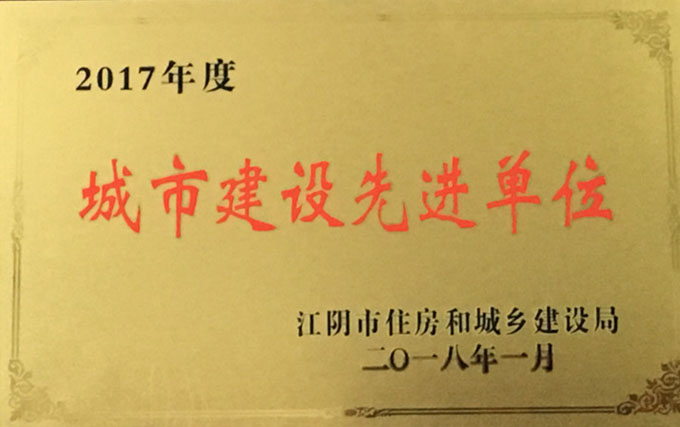 2017年度
城市建设先进单位
江阴市住房和城乡建设局
二〇一八年一月